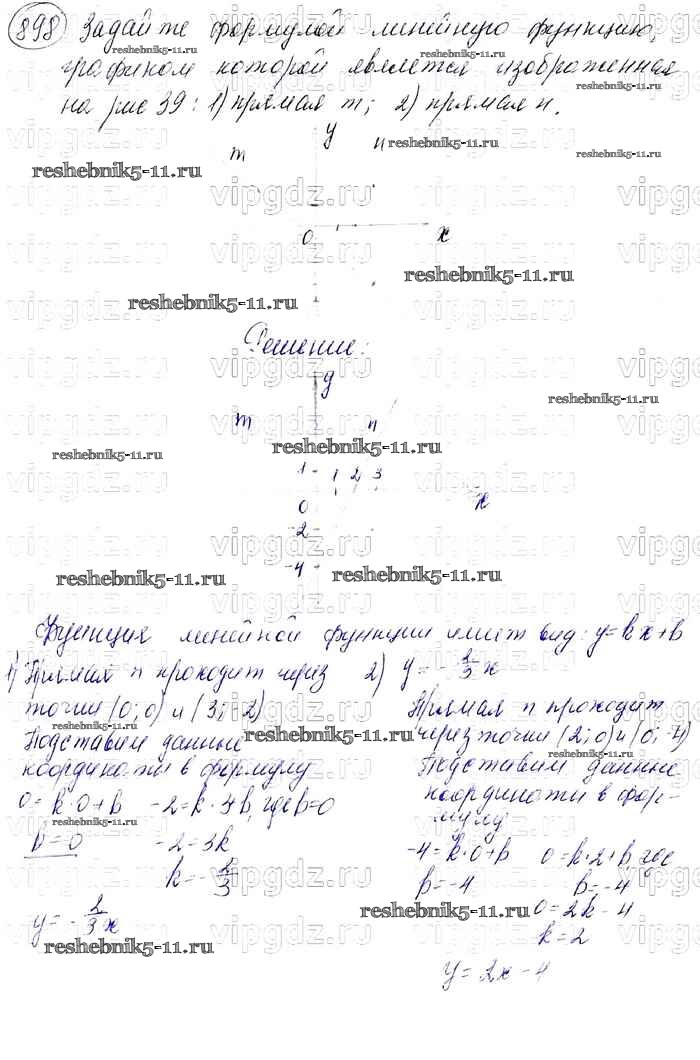 898 Задайте формулой линейную функцию,
графиком которой является изображенная
на рис 39: 1) прямая m; 2) прямая n.
y
m n
0 x
Решение:
y
m n
1 1 2 3
0 x
-2
-4
Функция линейной функции имеет вид: y=kx+b
1) Прямая n проходит через
точки (0; 0) и (3; -2)
Подставим данные
координаты в формулу
0=k·0+b -2=k·3+b, где b=0
b=0 -2=3k
k=-2/3
y=-2/3x
2) y=-2/3x
Прямая n проходит
через точки (2; 0) и (0; -4)
Подставим данные
координаты в фор-
мулу
-4=k·0+b 0=k·2+b где
b=-4 b=-4
0=2k-4
k=2
y=2x-4
reshebnik5-11.ru
vipgdz.ru